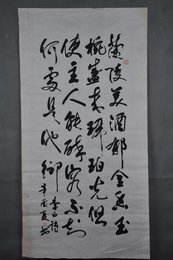 蘭陵美酒郁金香玉
椀盛来琥珀光但
使主人能醉客不知
何處是他鄉 李白詩